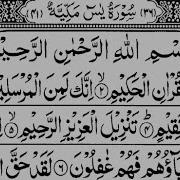 (٣٦) سُوْرَةُ يٰسٓ مَكِّيَّةٌ (٤١)
سْمِ اللهِ الرَّحْمٰنِ الرَّحِيْ
قُرْاٰنِ الْحَكِيْمِ ﴿٢﴾ اِنَّكَ لَمِنَ الْمُرْسَلِيْ
قِيْمٍ ﴿٤﴾ تَنْزِيْلَ الْعَزِيْزِ الرَّحِيْمِ ﴿٥﴾
بَآؤُهُمْ فَهُمْ غٰفِلُوْنَ ﴿٦﴾ لَقَدْ حَقَّ